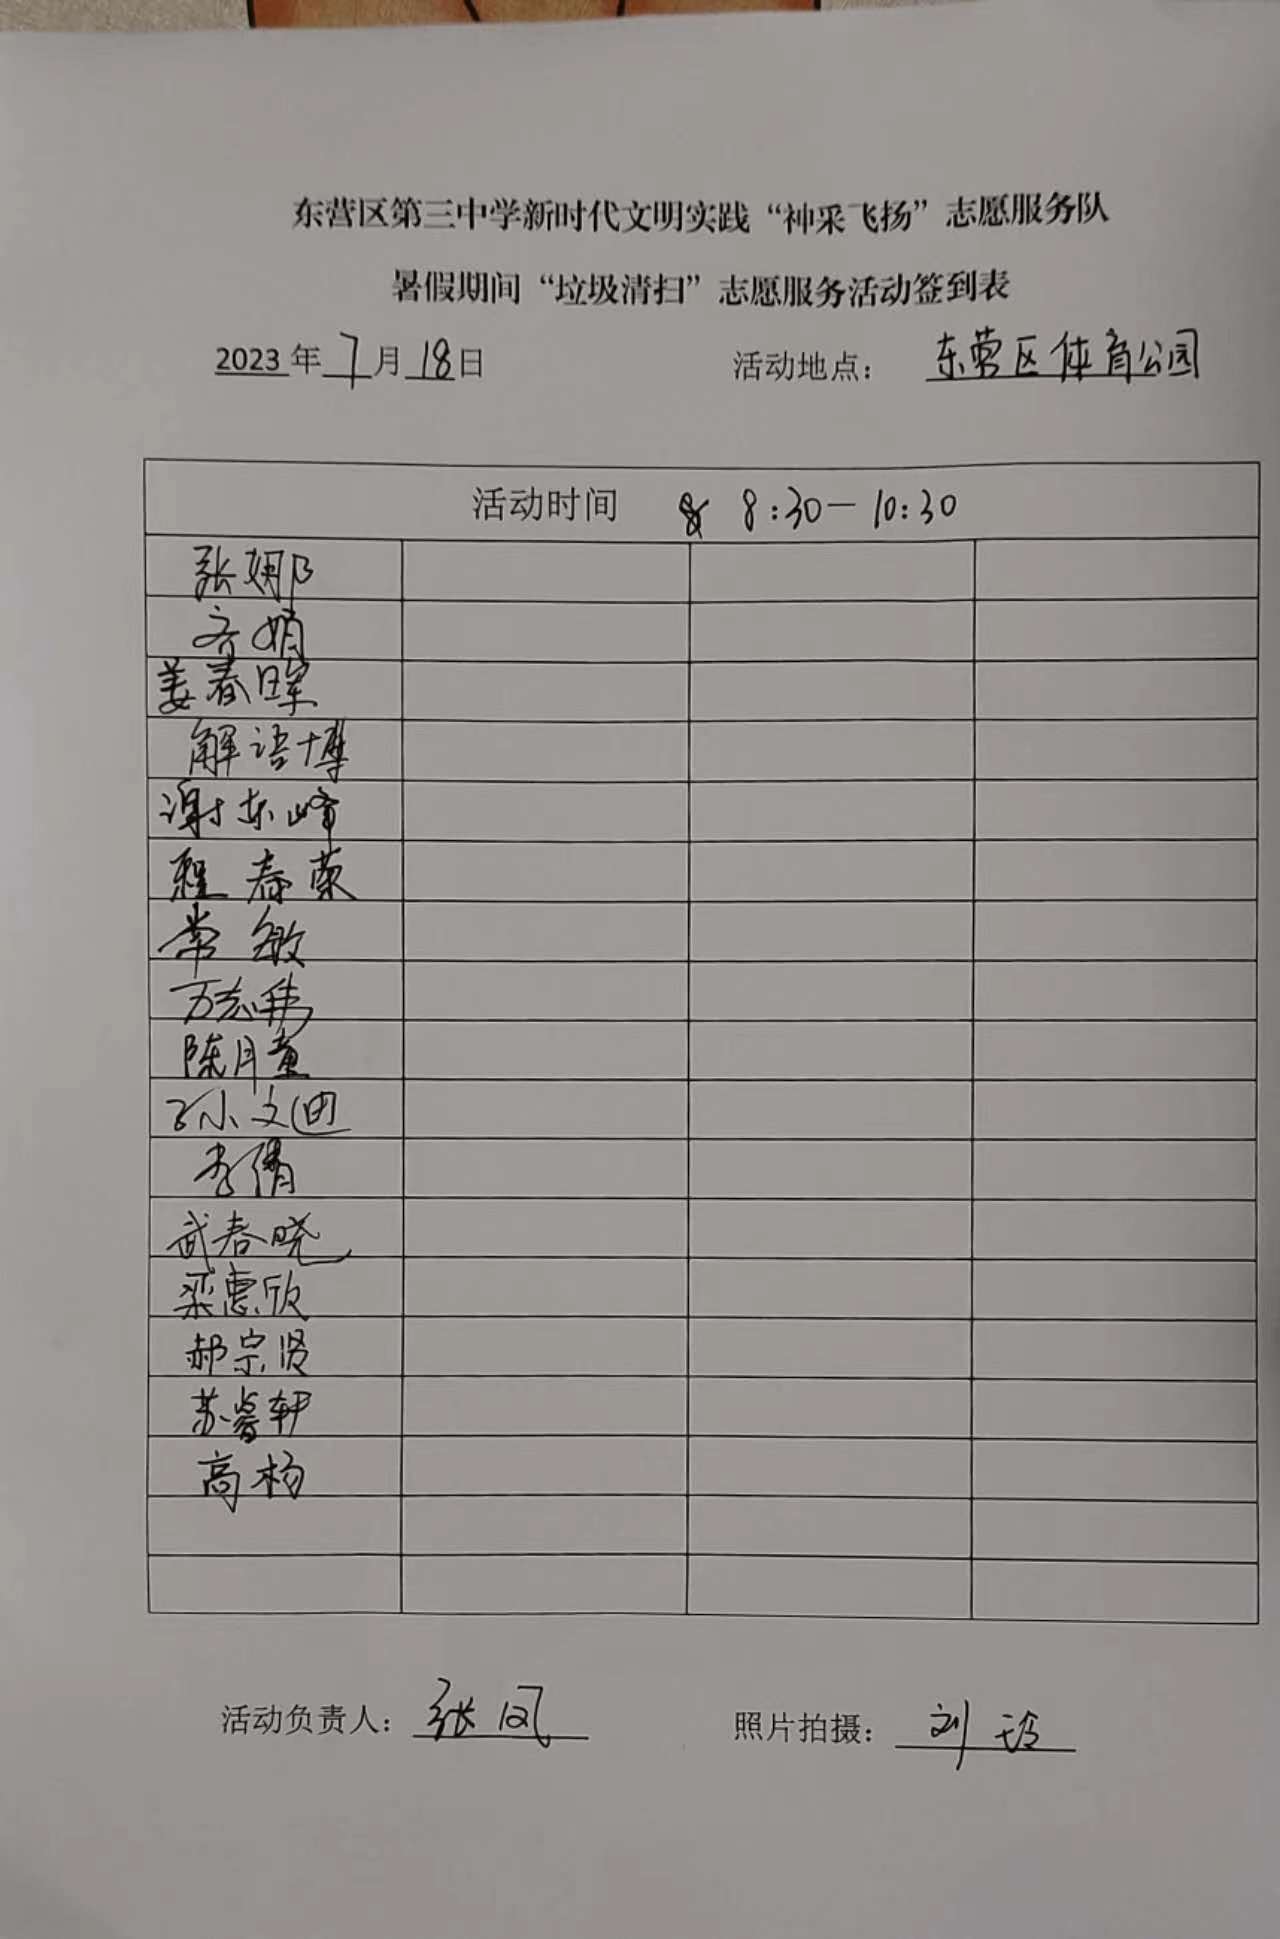 东营区第三中学新时代文明实践“神采飞扬”志愿服务队
暑假期间“垃圾清扫”志愿服务活动签到表
2023年7月18日 活动地点: 东营区体育公园
活动时间 8:30—10:30
张娜
齐娟
姜春晖
解语博
谢东峰
程春荣
常敏
万志伟
陈月童
孙文迪
李倩
武春晓
梁惠欣
郝宗贤
苏睿轩
高杨
活动负责人: 张凤 照片拍摄: 刘玲